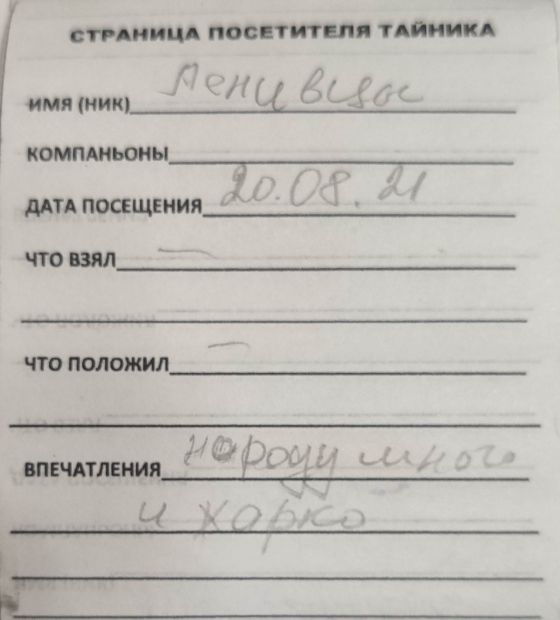 СТРАНИЦА ПОСЕТИТЕЛЯ ТАЙНИКА
ИМЯ (НИК) Ленивцы
КОМПАНЬОНЫ
ДАТА ПОСЕЩЕНИЯ 20.08.21
ЧТО ВЗЯЛ —
ЧТО ПОЛОЖИЛ —
ВПЕЧАТЛЕНИЯ народу много
и жарко